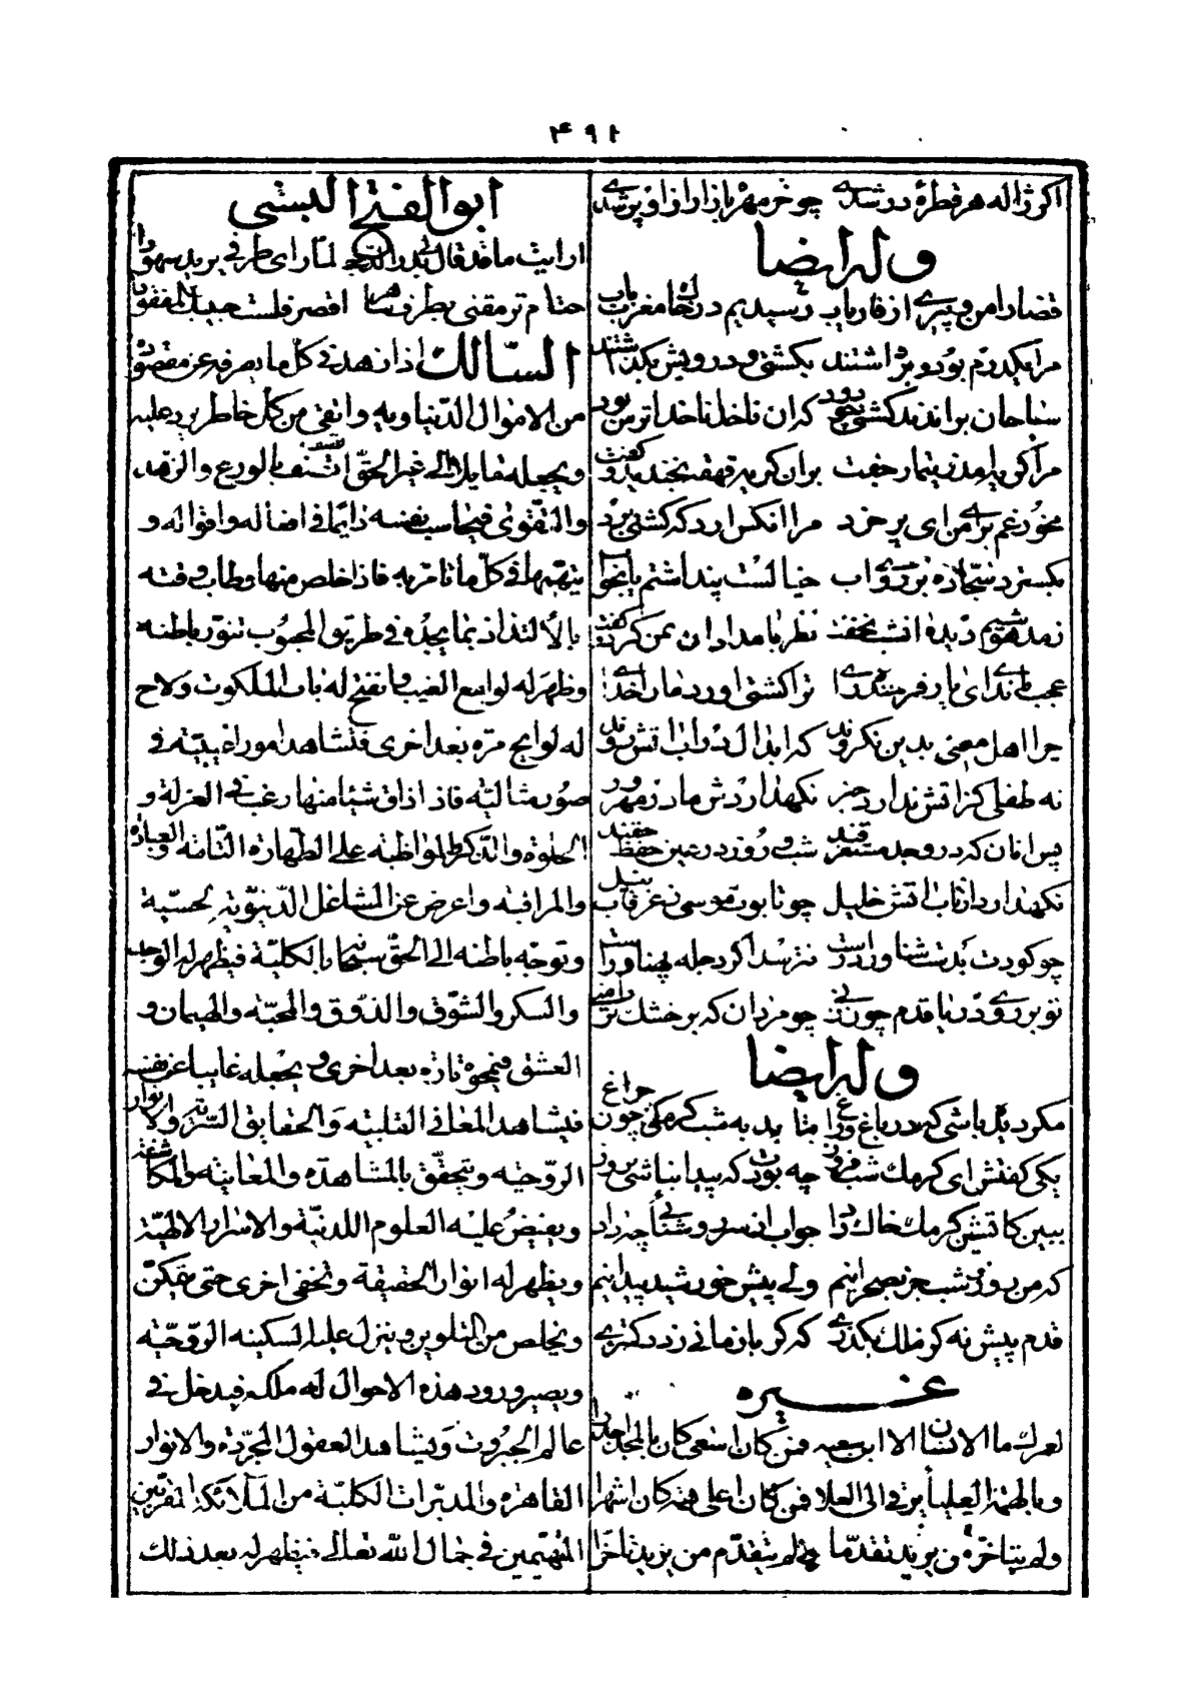 ۴۹۱
اکر ژاله هر قطرهٔ در شدے چو خر مهره بازار ازاو پر شدے
وله ایضا
قضا را من و پیرے از فاریاب رسیدیم در خاک مغرب باب
مرا یکدرم بود و برداشتند بکشتی و درویش بگذاشتند
سیاحان براندند کشتی چو دود که ان ناخدا ناخدا ترس بود
مرا کریه امد ز تیمار جفت بران کریه قهقه بخندید و کفت
مخور غم براے من ای پر خرد مرا انکس ارد که کشتی برد
بکسترد سجاده بر روے اب خیالست پنداشتم یا بخواب
ز مدهوشیم دیده انشب نخفت نظر بامدادان بمن کرد و کفت
عجب ماندے ای یار فرخنده راے ترا کشتی اورد ما را خداے
چرا اهل معنی بدین نکروند که ابدال در اب و اتش روند
نه طفلی کز اتش ندارد خبر نکهداردش مادر مهر ور
پس انان که در وجد مستغرقند شب و روز در عین حفظ حقند
نکهدارد از تاب اتش خلیل چو تابوت موسی ز غرقاب نیل
چو کودک بدست شناور دراست نترسد اکر دجله پهناور است
تو بر روے دریا قدم چون زنی چو مردان که بر خشک تر دامنی
وله ایضا
مکر دیده باشی که در باغ و راغ بتابد به شب کرمکی چون چراغ
یکی کفتش ای کرمک شب فروز چه بودت که پیدا نباشی بروز
ببین کاتشین کرمک خاک زاد جواب از سر روشنائی چه داد
که من روز و شب جز بصحرا نیم ولے پیش خورشید پیدا نیم
غیره
لعمرك ما الانسان الا ابن سعیه فمن كان اسعى كان بالمجد اجدرا
وبالهمة العلیا یرقى الى العلا فمن كان اعلى همة كان اشهرا
ولم یتاخر من یرید تقدما ولم یتقدم من یرید تاخرا
ابو الفتح البستی
ارایت ما قد قال لی بدر الدجى لما رای طرفی یرید سهودا
حتام ترمقنی بطرف ساهر اقصر فلست حبیبك المفقودا
السّالك اذا زهد فی كل ما یصرفه عن مقصوده
من الاموال الدنیاویه واتقى من كل خاطر یرد علیه
ویجعله مایلا الى غیر الحق اتصف بالورع والزهد
والتقوى فیحاسب نفسه دایما فی افعاله واقواله و
یتهمها فی كل ما تامر به فاذا خلص منها وطاب وقته
بالالتذاذ بما یجده فی طریق المحبوب تنور باطنه
وظهر له لوامع الغیب وانفتح له باب الملكوت ولاح
له لوایح مرة بعد اخرى فیشاهد امورا غیبیة فی
صور مثالیة فاذا ذاق شیئا منها رغب فی العزلة و
الخلوة والذكر والمواظبة على الطهارة التامة والعبادة
والمراقبة واعرض عن المشاغل الدنیویة الحسیة
وتوجه باطنه الى الحق سبحانه بالكلیة فیظهر له الوجد
والسكر والشوق والذوق والمحبة والهیمان و
العشق فیمحوه تارة بعد اخرى ویجعله غایبا عن نفسه
فیشاهد المعانی القلبیة والحقایق السریة والانوار
الروحیة ویتحقق بالمشاهدة والمعاینة والمكاشفة
ویفیض علیه العلوم اللدنیة والاسرار الالهیة
ویظهر له انوار الحقیقة وتخفى اخرى حتى یتمكن
ویخلص من التلوین وینزل علیه السكینه الروحیة
ویصیر ورود هذه الاحوال له ملكة فیدخل فی
عالم الجبروت ویشاهد العقول المجردة والانوار
القاهرة والمدبرات الكلیة من الملائكة المقربین
المهیمین فی جمال الله تعالى فیظهر له بعد ذلك